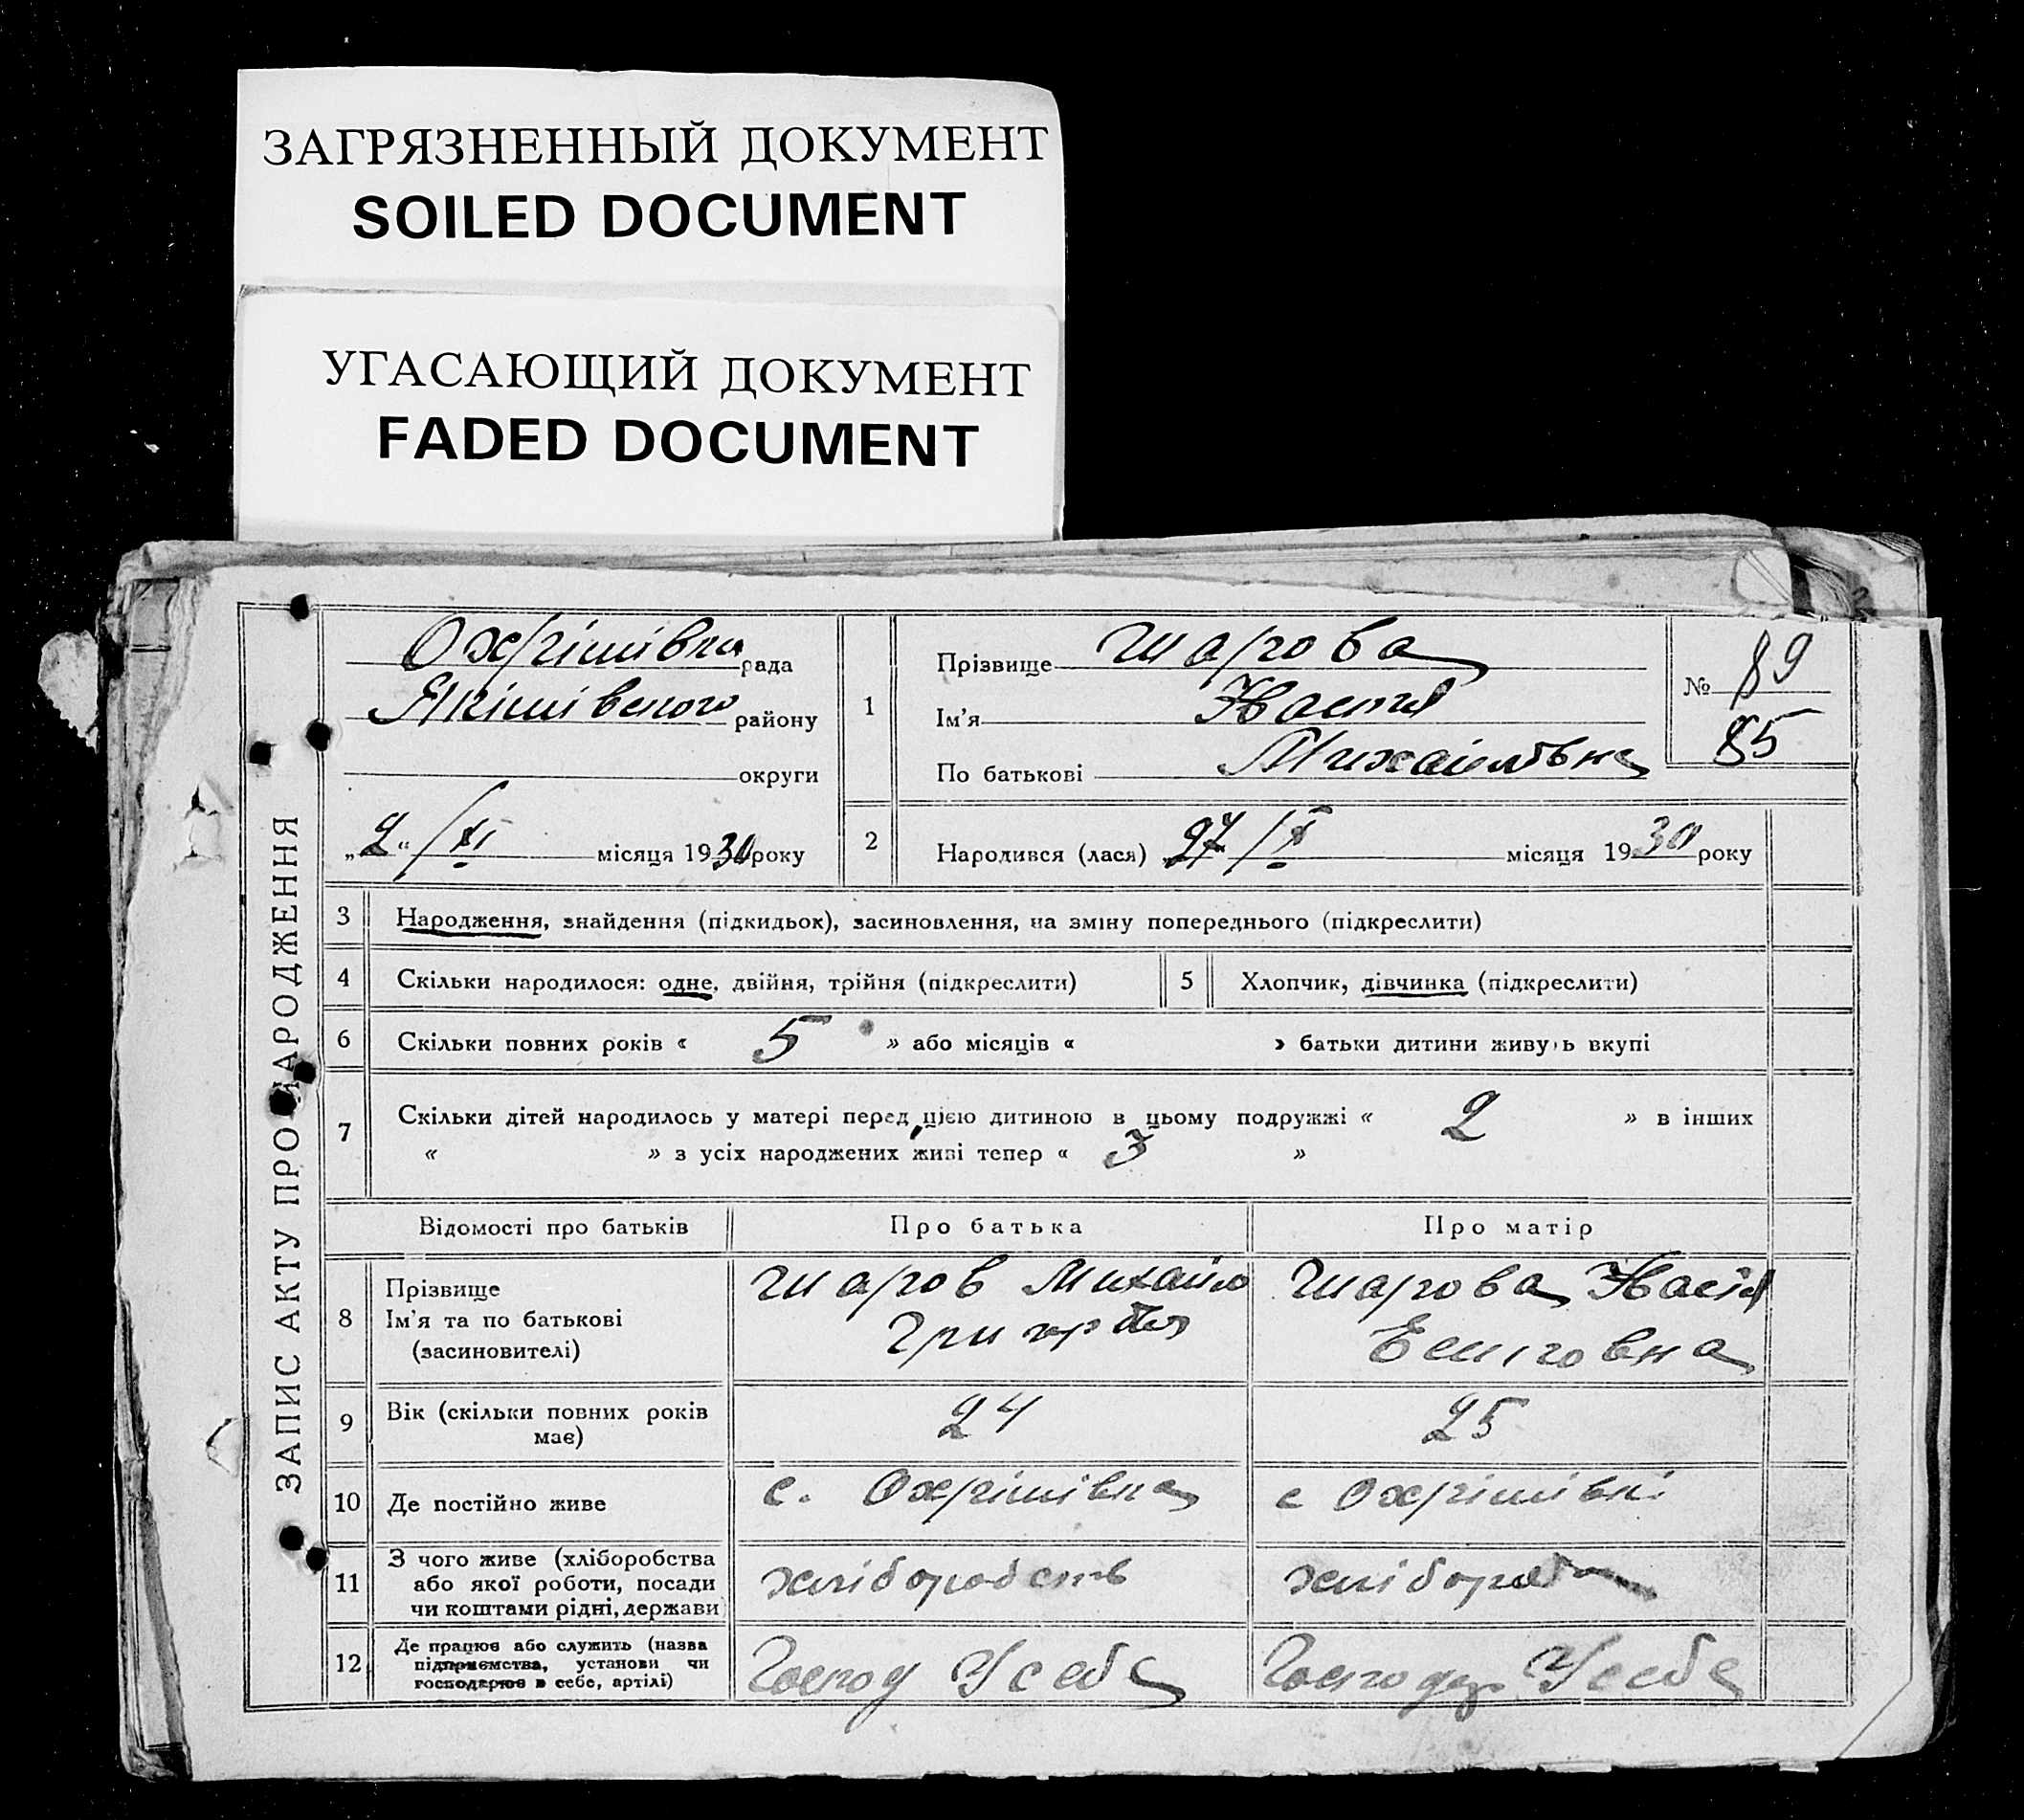 ЗАГРЯЗНЕННЫЙ ДОКУМЕНТ
SOILED DOCUMENT
УГАСАЮЩИЙ ДОКУМЕНТ
FADED DOCUMENT
ЗАПИС АКТУ ПРО НАРОДЖЕННЯ
Охрімівка рада
Якімівського району
округи
„2“ /XI місяця 1930 року
1
Прізвище Шарова
Ім'я Настя
По батькові Михайлівна
№ 89
85
2
Народився (лася) 27/X місяця 1930 року
3 Народження, знайдення (підкидьок), засиновлення, на зміну попереднього (підкреслити)
4 Скільки народилося: одне, двійня, трійня (підкреслити) 5 Хлопчик, дівчинка (підкреслити)
6 Скільки повних років « 5 » або місяців « » батьки дитини живуть вкупі
7 Скільки дітей народилось у матері перед цією дитиною в цьому подружжі « 2 » в інших
« » з усіх народжених живі тепер « 3 »
Відомості про батьків Про батька Про матір
8 Прізвище
Ім'я та по батькові
(засиновителі)
Шаров Михайло
Шарова Настя
9 Вік (скільки повних років
має)
24 25
10 Де постійно живе с. Охрімівка с Охрімівкі
11 З чого живе (хліборобства
або якої роботи, посади
чи коштами рідні, держави
хліборобств
12 Де працює або служить (назва
підприємства, установи чи
господарює в себе, артілі)
Господ У себе Господар У себе